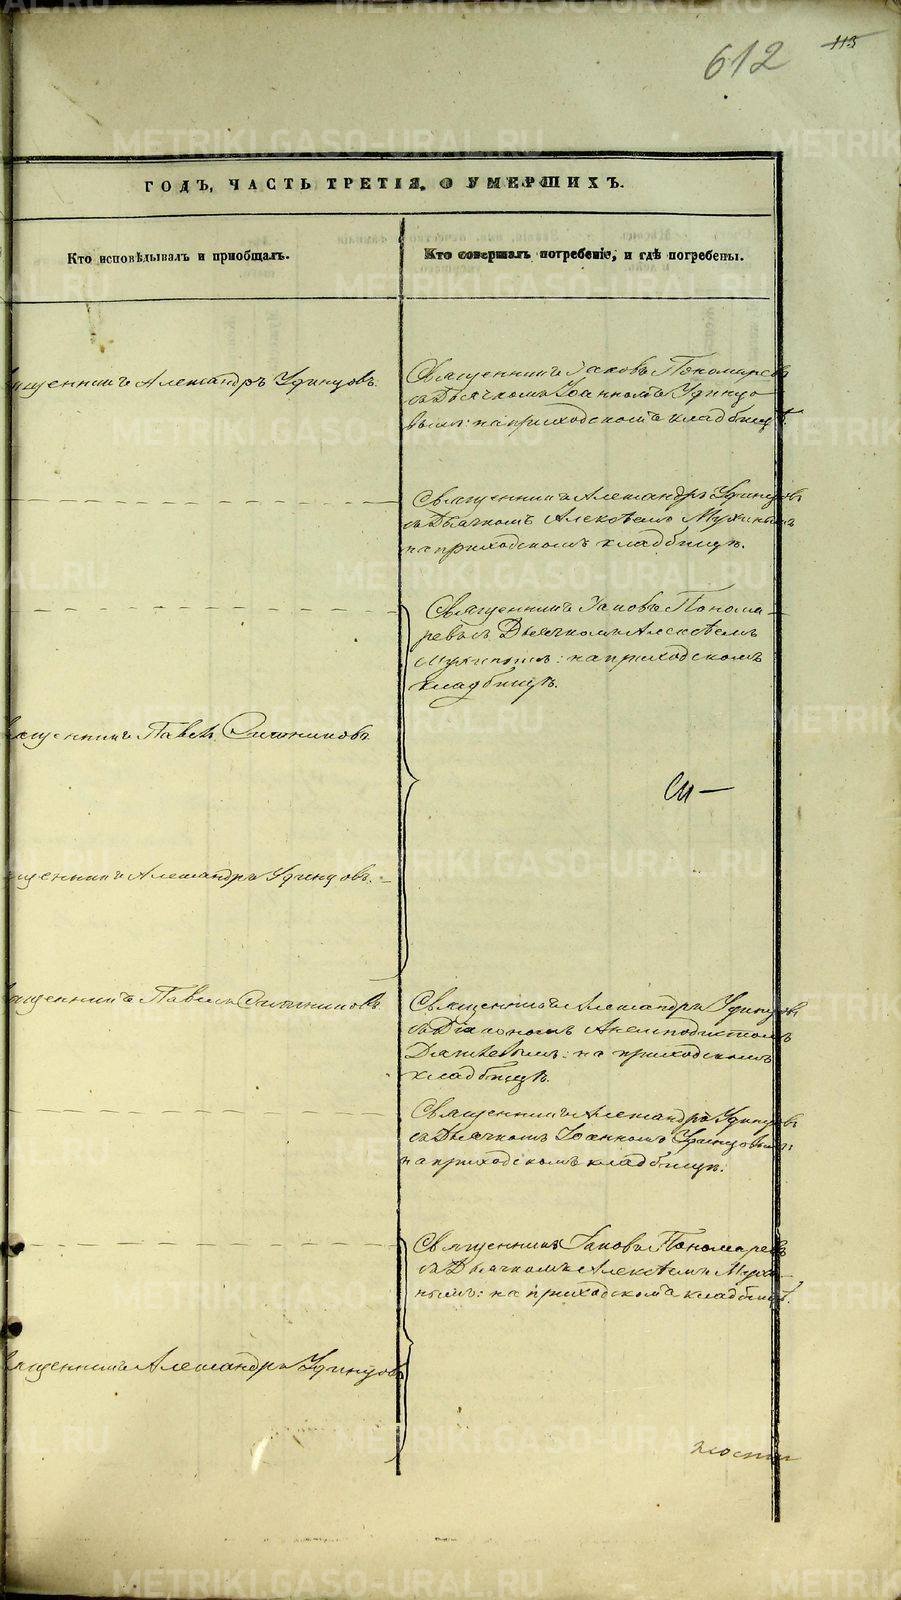 612 113
ГОДЪ, ЧАСТЬ ТРЕТІЯ, О УМЕРШИХЪ.
Кто исповѣдывалъ и пріобщалъ.
Кто совершалъ погребеніе, и гдѣ погребены.
Священникъ Александръ Удинцовъ.
Священникъ Іаковъ Пономаревъ
съ Дьячкомъ Іоанномъ Удинцо
вымъ: на приходскомъ кладбищѣ.
Священникъ Александръ Удинцовъ
съ Дьячкомъ Алексѣемъ Мухинымъ
на приходскомъ кладбищѣ.
Священникъ Іаковъ Понома-
ревъ съ Дьячкомъ Алексѣемъ
Мухинымъ: на приходскомъ
кладбищѣ.
Священникъ Павелъ
Священникъ Александръ Удинцовъ.
Священникъ Павелъ
Священникъ Александръ Удинцовъ
съ Діакономъ Анемподистомъ
на приходскомъ
кладбищѣ.
Священникъ Александръ Удинцовъ
съ Дьячкомъ Іоанномъ Удинцовымъ:
на приходскомъ кладбищѣ.
Священникъ Іаковъ Пономаревъ
съ Дьячкомъ Алексѣемъ Мухи-
нымъ: на приходскомъ кладбищѣ.
Священникъ Александръ Удинцовъ
METRIKI.GASO-URAL.RU